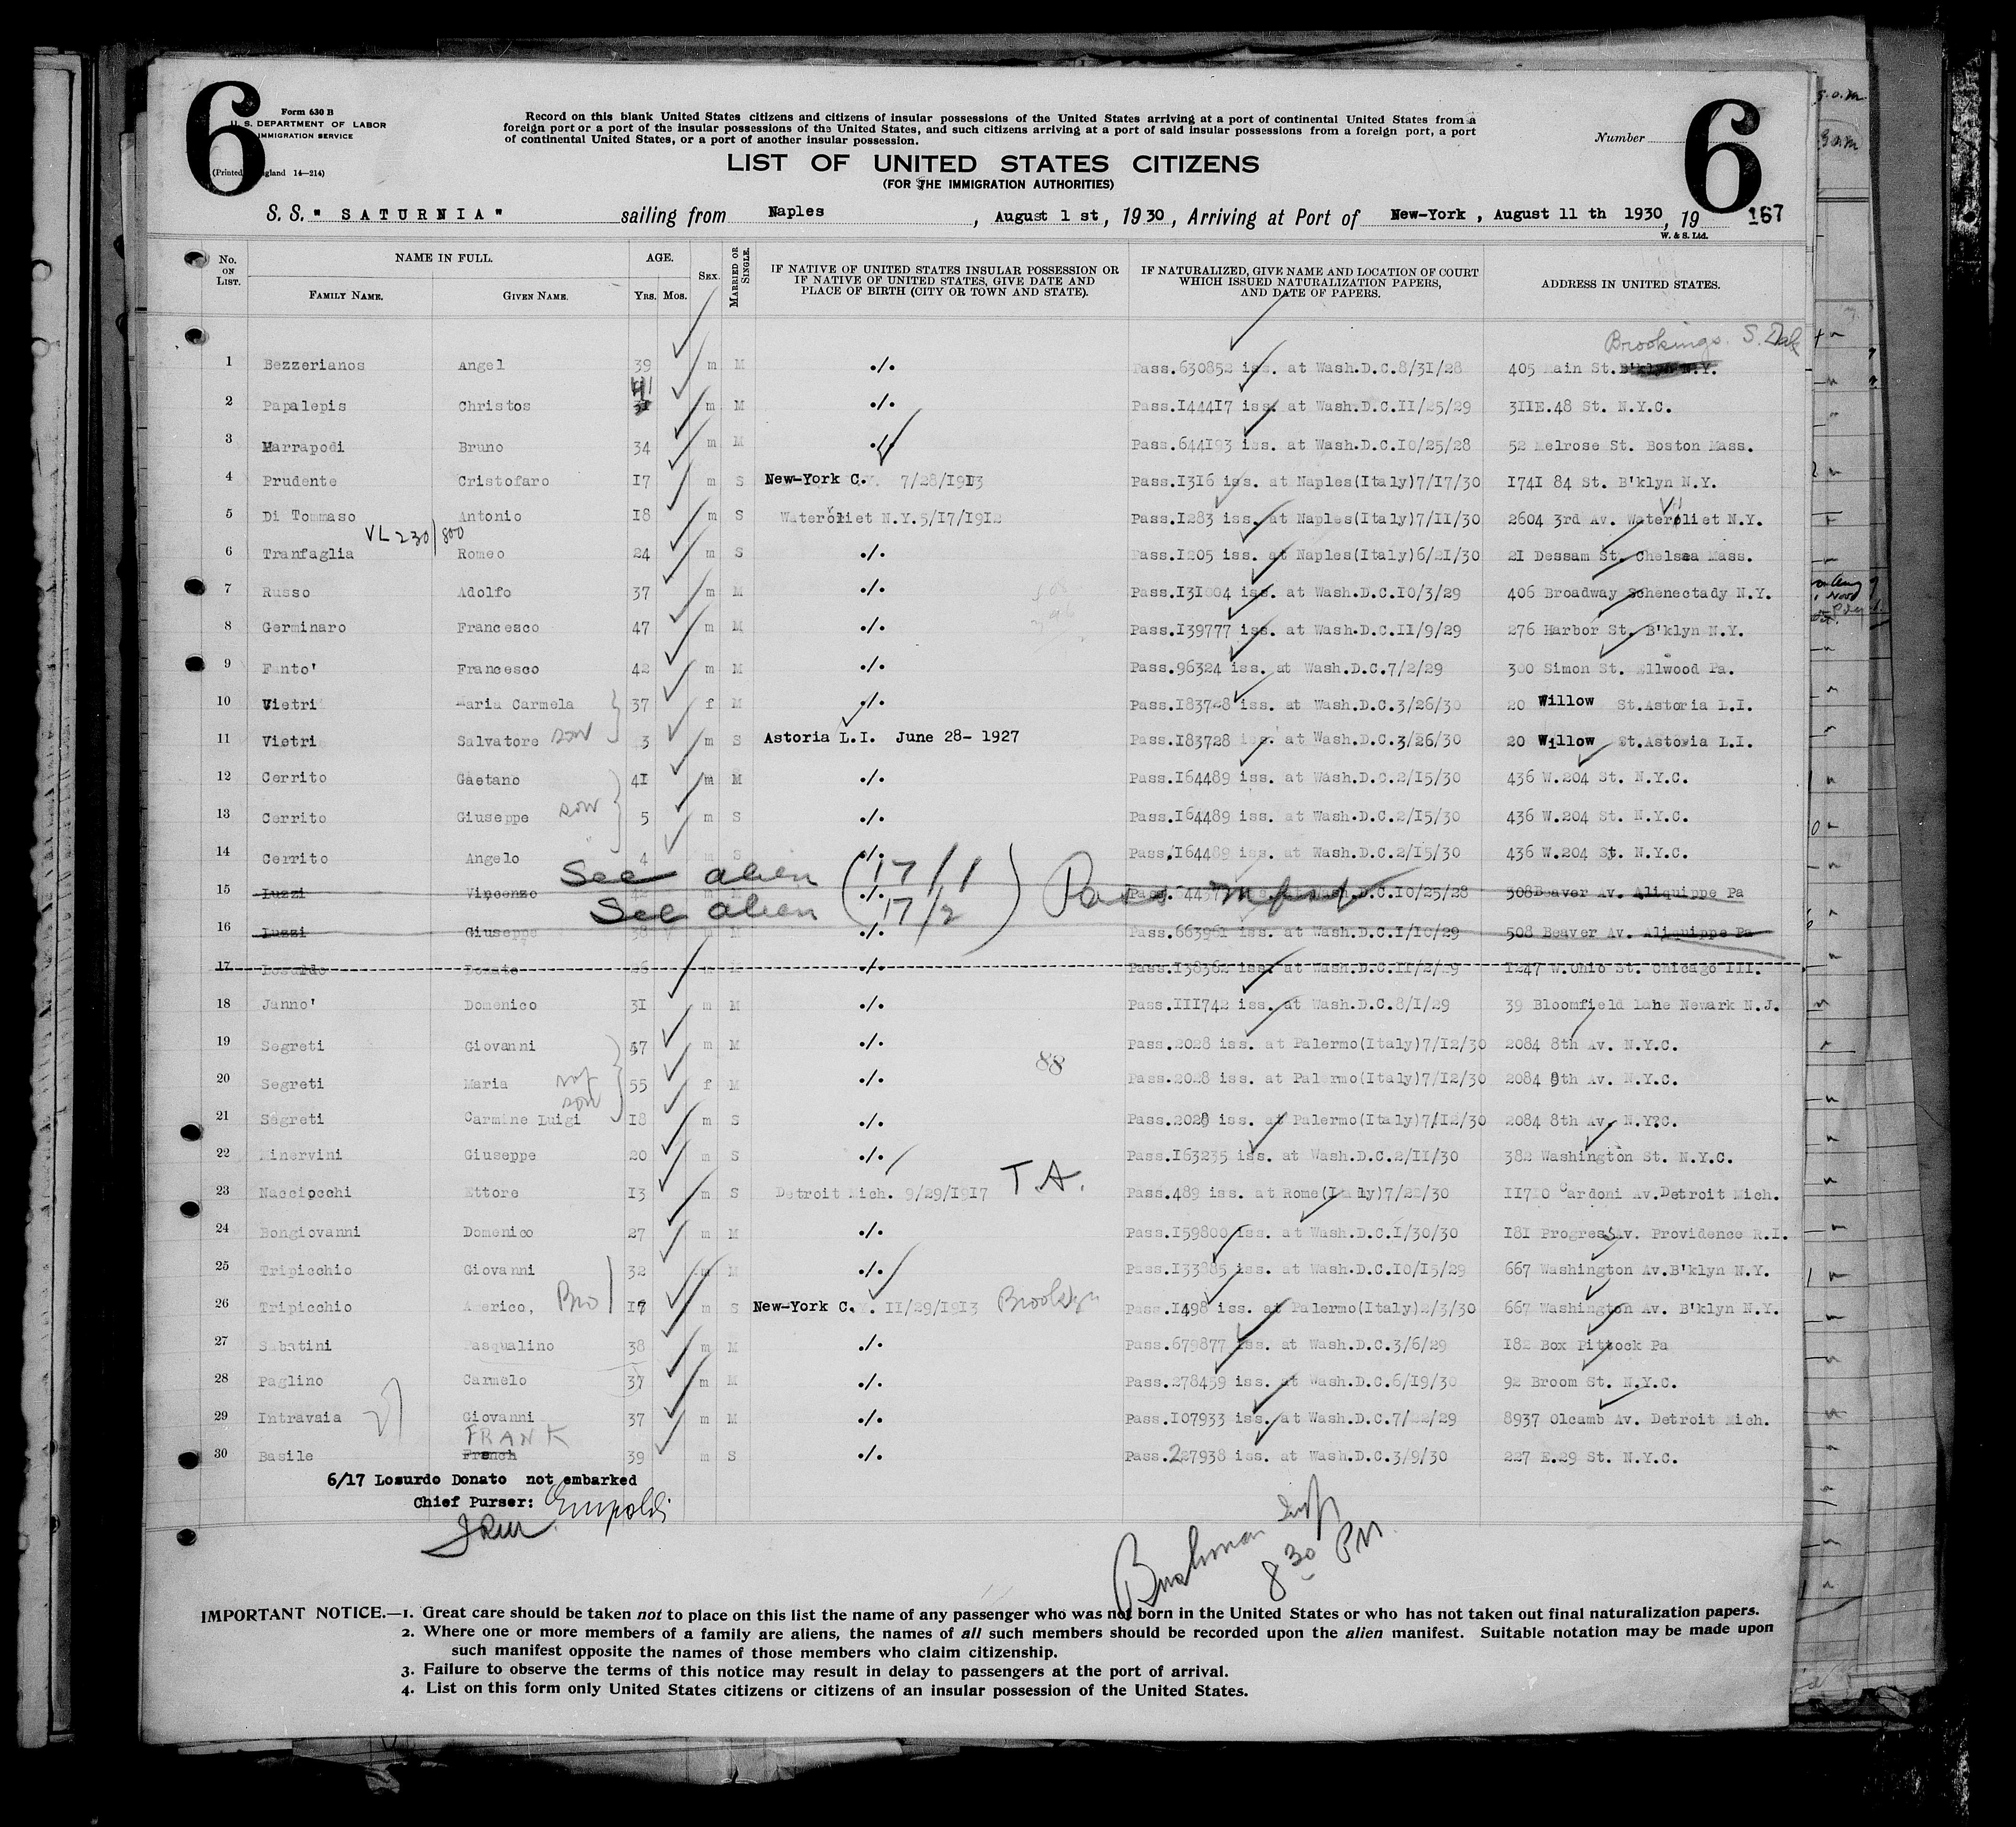 6
Form 630 B
U. S. DEPARTMENT OF LABOR
IMMIGRATION SERVICE
(Printed England 14—214)
Record on this blank United States citizens and citizens of insular possessions of the United States arriving at a port of continental United States from a
foreign port or a port of the insular possessions of the United States, and such citizens arriving at a port of said insular possessions from a foreign port, a port
of continental United States, or a port of another insular possession.
Number
6
LIST OF UNITED STATES CITIZENS
(FOR THE IMMIGRATION AUTHORITIES)
S. S. "SATURNIA" sailing from Naples, August 1 st, 1930, Arriving at Port of New-York, August 11 th 1930, 19 167
W. & S. Ltd.
No. ON LIST. NAME IN FULL. AGE. SEX. MARRIED OR SINGLE. IF NATIVE OF UNITED STATES INSULAR POSSESSION OR IF NATIVE OF UNITED STATES, GIVE DATE AND PLACE OF BIRTH (CITY OR TOWN AND STATE). IF NATURALIZED, GIVE NAME AND LOCATION OF COURT WHICH ISSUED NATURALIZATION PAPERS, AND DATE OF PAPERS. ADDRESS IN UNITED STATES.
FAMILY NAME. GIVEN NAME. YRS. MOS.
Brookings. S. Dak
1 Bezzerianos Angel 39 m M ./. Pass.630852 iss. at Wash.D.C.8/31/28 405 Main St. B'klyn N.Y.
2 Papalepis Christos 41 m M ./. Pass.144417 iss. at Wash.D.C.11/25/29 311E.48 St. N.Y.C.
3 Marrapodi Bruno 34 m M ./. Pass.644193 iss. at Wash.D.C.10/25/28 52 Melrose St. Boston Mass.
4 Prudente Cristofaro 17 m S New-York C. 7/28/1913 Pass.1316 iss. at Naples(Italy)7/17/30 1741 84 St. B'klyn N.Y.
5 Di Tommaso Antonio 18 m S Watervliet N.Y.5/17/1912 Pass.1283 iss. at Naples(Italy)7/11/30 2604 3rd Av. Watervliet N.Y.
VL 230/800
6 Tranfaglia Romeo 24 m S ./. Pass.1205 iss. at Naples(Italy)6/21/30 21 Dessam St. Chelsea Mass.
7 Russo Adolfo 37 m M ./. Pass.131004 iss. at Wash.D.C.10/3/29 406 Broadway Schenectady N.Y.
8 Germinaro Francesco 47 m M ./. Pass.139777 iss. at Wash.D.C.11/9/29 276 Harbor St. B'klyn N.Y.
9 Fanto' Francesco 42 m M ./. Pass.96324 iss. at Wash.D.C.7/2/29 300 Simon St. Ellwood Pa.
10 Vietri Maria Carmela 37 f M ./. Pass.183728 iss. at Wash.D.C.3/26/30 20 Willow St.Astoria L.I.
11 Vietri Salvatore son 3 m S Astoria L.I. June 28- 1927 Pass.183728 iss. at Wash.D.C.3/26/30 20 Willow St.Astoria L.I.
12 Cerrito Gaetano 41 m M ./. Pass.164489 iss. at Wash.D.C.2/15/30 436 W.204 St. N.Y.C.
13 Cerrito Giuseppe son 5 m S ./. Pass.164489 iss. at Wash.D.C.2/15/30 436 W.204 St. N.Y.C.
14 Cerrito Angelo " 4 m S ./. Pass.164489 iss. at Wash.D.C.2/15/30 436 W.204 St. N.Y.C.
See alien (17/1
15 Luzzi Vincenzo ./. at Wash.D.C.10/25/28 308Beaver Av. Aliquippe Pa
See alien 17/2)
16 Luzzi Giuseppe 38 m M ./. Pass.663961 iss. at Wash.D.C.1/10/29 508 Beaver Av. Aliquippe Pa
17 Losurdo Donato 26 ./. Pass.138362 iss. at Wash.D.C.11/2/29 1247 W.Ohio St. Chicago Ill.
18 Janno' Domenico 31 m M ./. Pass.111742 iss. at Wash.D.C.8/1/29 39 Bloomfield lane Newark N.J.
19 Segreti Giovanni 57 m M ./. Pass.2028 iss. at Palermo(Italy)7/12/30 2084 8th Av. N.Y.C.
88
20 Segreti Maria 55 f M ./. Pass.2028 iss. at Palermo(Italy)7/12/30 2084 8th Av. N.Y.C.
21 Segreti Carmine Luigi son 18 m S ./. Pass.2028 iss. at Palermo(Italy)7/12/30 2084 8th Av. N.Y.C.
22 Minervini Giuseppe 20 m S ./. Pass.163235 iss. at Wash.D.C.2/11/30 382 Washington St. N.Y.C.
23 Nacciocchi Ettore 13 m S Detroit Mich. 9/29/1917 T.A. Pass.489 iss. at Rome(Italy)7/22/30 11710 Cardoni Av.Detroit Mich.
24 Bongiovanni Domenico 27 m M ./. Pass.159800 iss. at Wash.D.C.1/30/30 181 Progress Av. Providence R.I.
25 Tripicchio Giovanni 32 m M ./. Pass.133885 iss. at Wash.D.C.10/15/29 667 Washington Av.B'klyn N.Y.
26 Tripicchio Americo, Bro m S New-York C.Y. 11/29/1913 Brooklyn Pass.1498 iss. at Palermo(Italy)2/3/30 667 Washington Av. B'klyn N.Y.
27 Sabatini Pasqualino 38 m M ./. Pass.679877 iss. at Wash.D.C.3/6/29 182 Box Pittock Pa
28 Paglino Carmelo 37 m M ./. Pass.278459 iss. at Wash.D.C.6/19/30 92 Broom St. N.Y.C.
29 Intravaia Giovanni 37 m M ./. Pass.107933 iss. at Wash.D.C.7/22/29 8937 Olcamb Av. Detroit Mich.
FRANK
30 Basile French 39 m S ./. Pass.227938 iss. at Wash.D.C.3/9/30 227 E.29 St. N.Y.C.
6/17 Losurdo Donato not embarked
Chief Purser:
Bushman Insp
8 30 PM
IMPORTANT NOTICE.—1. Great care should be taken not to place on this list the name of any passenger who was not born in the United States or who has not taken out final naturalization papers.
2. Where one or more members of a family are aliens, the names of all such members should be recorded upon the alien manifest. Suitable notation may be made upon
such manifest opposite the names of those members who claim citizenship.
3. Failure to observe the terms of this notice may result in delay to passengers at the port of arrival.
4. List on this form only United States citizens or citizens of an insular possession of the United States.